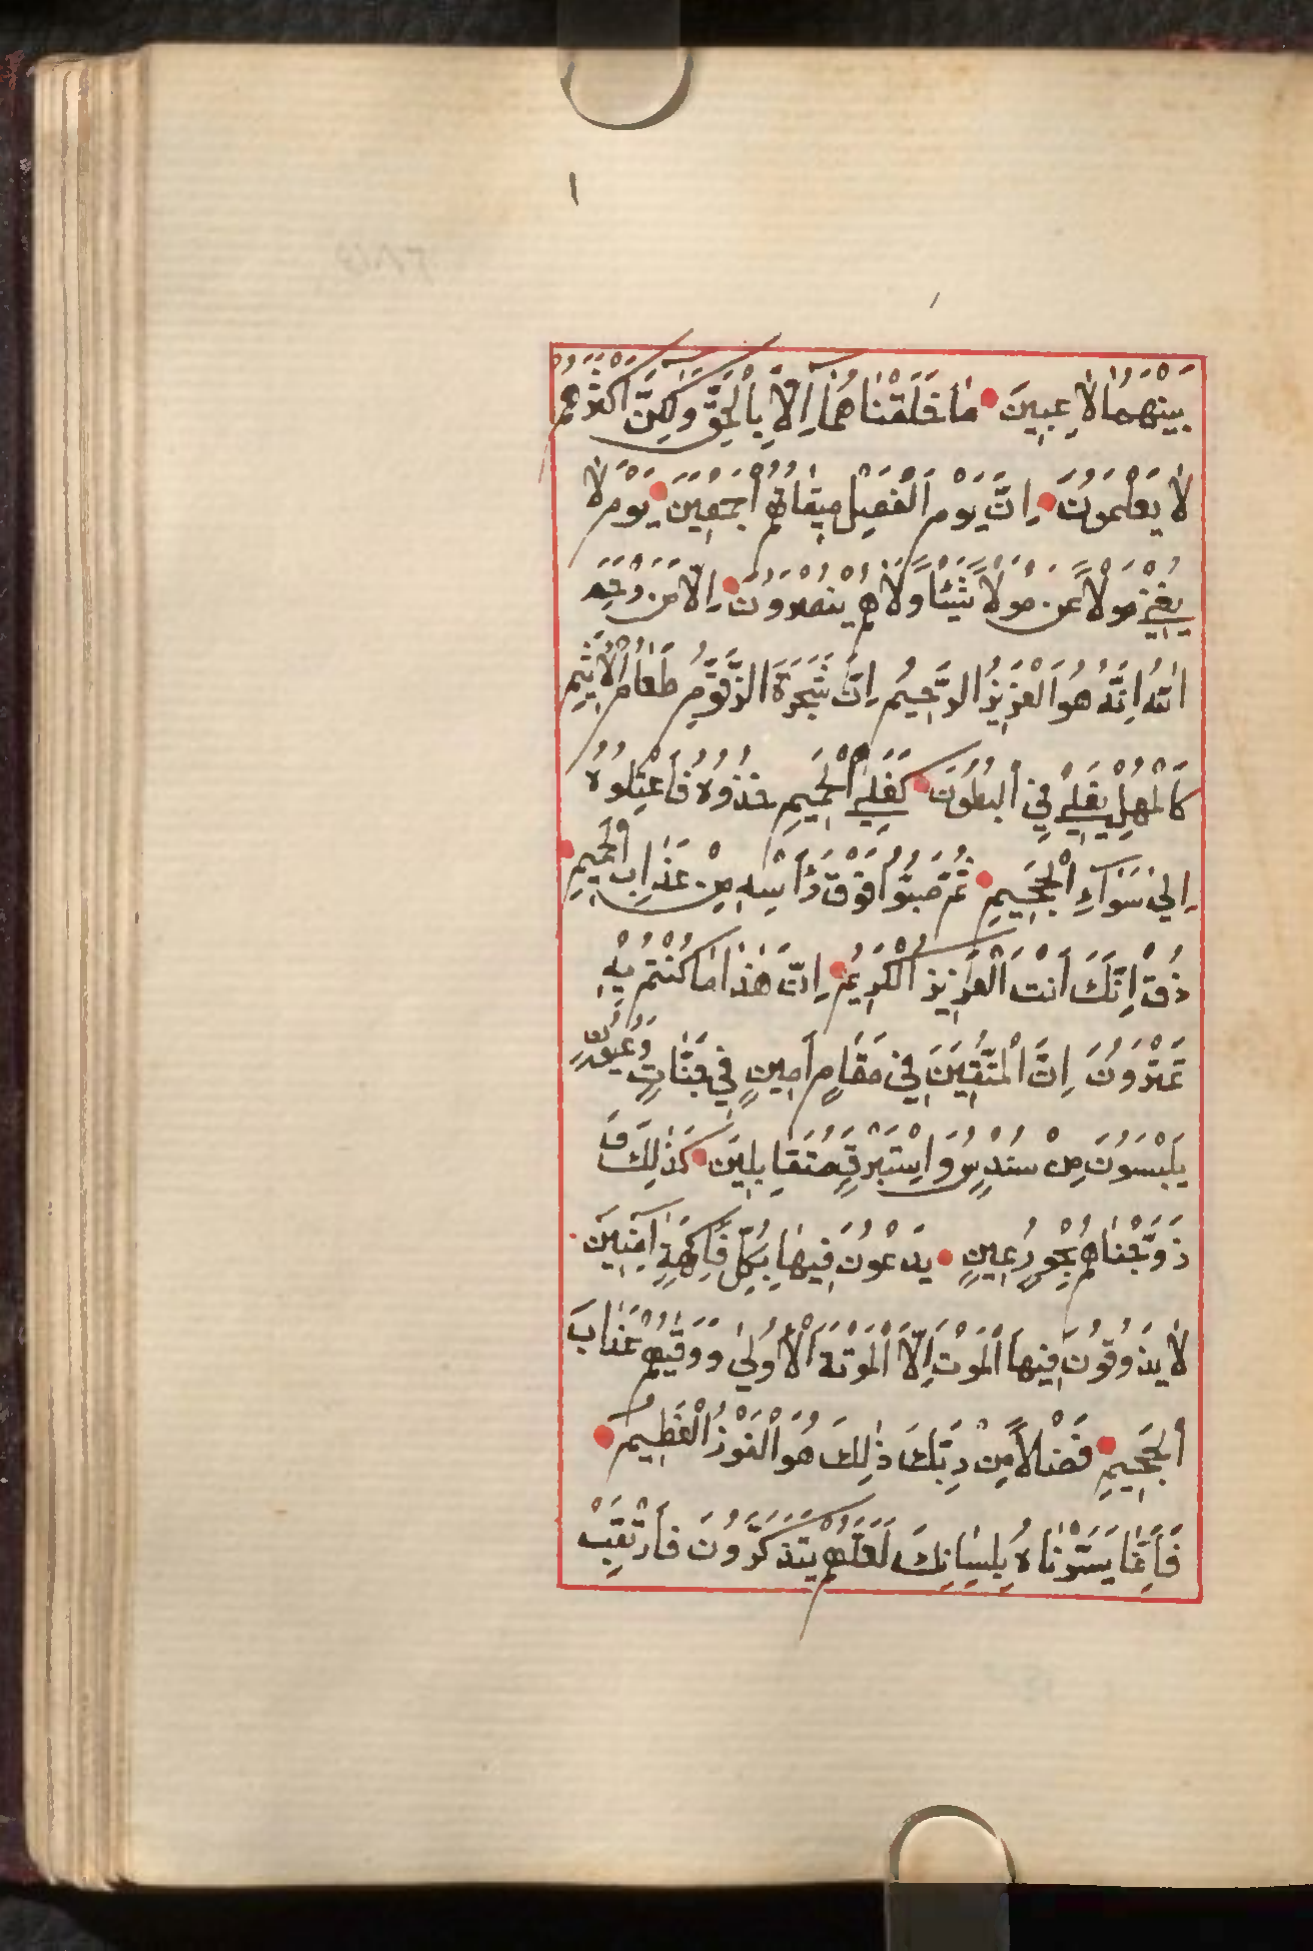 ١
بَيْنَهُمَا لَاعِبِينَ مَا خَلَقْنَاهُمَا اِلَّا بِالْحَقِّ وَلٰكِنَّ اَكْثَرَهُمْ
لَا يَعْلَمُونَ اِنَّ يَوْمَ الْفَصْلِ مِيقَاتُهُمْ اَجْمَعِينَ يَوْمَ لَا
يُغْنِي مَوْلًا عَنْ مَوْلًا شَيْئًا وَلَا هُمْ يُنْصَرُونَ اِلَّا مَنْ رَحِمَ
اللّٰهُ اِنَّهُ هُوَ الْعَزِيزُ الرَّحِيمُ اِنَّ شَجَرَةَ الزَّقُّومِ طَعَامُ الْاَثِيمِ
كَالْمُهْلِ يَغْلِي فِي الْبُطُونِ كَغَلْيِ الْحَمِيمِ خُذُوهُ فَاعْتِلُوهُ
اِلَى سَوَآءِ الْجَحِيمِ ثُمَّ صُبُّوا فَوْقَ رَأْسِهِ مِنْ عَذَابِ الْحَمِيمِ
ذُقْ اِنَّكَ اَنْتَ الْعَزِيزُ الْكَرِيمُ اِنَّ هٰذَا مَا كُنْتُمْ بِهِ
تَمْتَرُونَ اِنَّ الْمُتَّقِينَ فِي مَقَامٍ اَمِينٍ فِي جَنَّاتٍ وَعُيُونٍ
يَلْبَسُونَ مِنْ سُنْدُسٍ وَاِسْتَبْرَقٍ مُتَقَابِلِينَ كَذٰلِكَ وَ
زَوَّجْنَاهُمْ بِحُورٍ عِينٍ يَدْعُونَ فِيهَا بِكُلِّ فَاكِهَةٍ اٰمِنِينَ
لَا يَذُوقُونَ فِيهَا الْمَوْتَ اِلَّا الْمَوْتَةَ الْاُولٰى وَوَقٰيهُمْ عَذَابَ
الْجَحِيمِ فَضْلًا مِنْ رَبِّكَ ذٰلِكَ هُوَ الْفَوْزُ الْعَظِيمُ
فَاِنَّمَا يَسَّرْنَاهُ بِلِسَانِكَ لَعَلَّهُمْ يَتَذَكَّرُونَ فَارْتَقِبْ